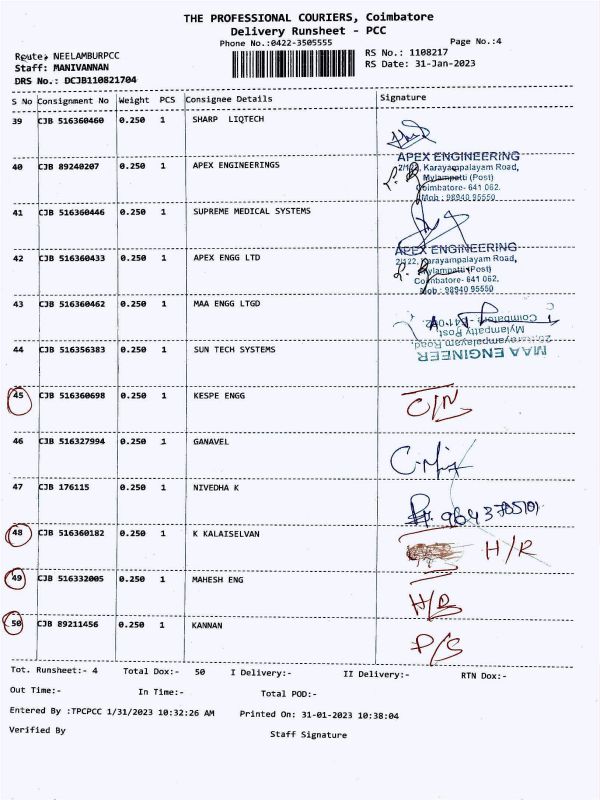 THE PROFESSIONAL COURIERS, Coimbatore
Delivery Runsheet - PCC
Phone No.:0422-3505555
Page No.:4
Route: NEELAMBURPCC
RS No.: 1108217
Staff: MANIVANNAN
RS Date: 31-Jan-2023
DRS No.: DCJB110821704
S No Consignment No Weight PCS Consignee Details Signature
39 CJB 516360460 0.250 1 SHARP LIQTECH
40 CJB 89240207 0.250 1 APEX ENGINEERINGS
APEX ENGINEERING
2/122, Karayampalayam Road,
Mylampatti (Post)
Coimbatore- 641 062.
Mob : 98940 95550
41 CJB 516360446 0.250 1 SUPREME MEDICAL SYSTEMS
42 CJB 516360433 0.250 1 APEX ENGG LTD
APEX ENGINEERING
2/122, Karayampalayam Road,
Mylampatti (Post)
Coimbatore- 641 062.
Mob : 98940 95550
43 CJB 516360462 0.250 1 MAA ENGG LTGD
MAA ENGINEER
Karayampalayam Road,
Mylampatty Post,
Coimbatore - 641 062.
44 CJB 516356383 0.250 1 SUN TECH SYSTEMS
45 CJB 516360698 0.250 1 KESPE ENGG
C/N
46 CJB 516327994 0.250 1 GANAVEL
47 CJB 176115 0.250 1 NIVEDHA K
48 CJB 516360182 0.250 1 K KALAISELVAN
H/R
49 CJB 516332005 0.250 1 MAHESH ENG
H/R
50 CJB 89211456 0.250 1 KANNAN
P/S
Tot. Runsheet:- 4 Total Dox:- 50 I Delivery:- II Delivery:- RTN Dox:-
Out Time:- In Time:- Total POD:-
Entered By :TPCPCC 1/31/2023 10:32:26 AM Printed On: 31-01-2023 10:38:04
Verified By Staff Signature